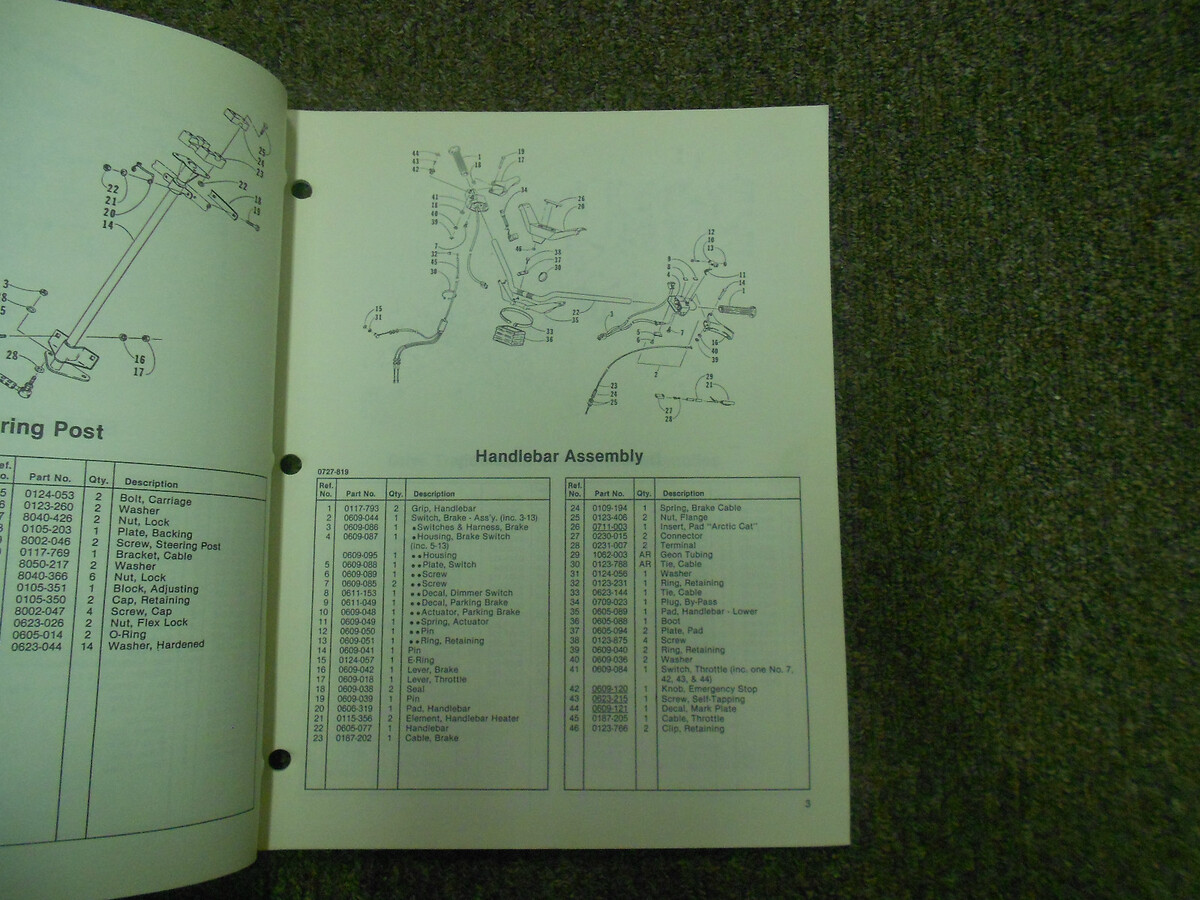 25
24
23
22
22
21
20
14
18
19
3
28
16
17
ring Post
ef.
o. Part No. Qty. Description
5 0124-053 2 Bolt, Carriage
6 0123-260 2 Washer
7 8040-426 2 Nut, Lock
8 0105-203 1 Plate, Backing
8002-046 2 Screw, Steering Post
0117-769 1 Bracket, Cable
8050-217 2 Washer
8040-366 6 Nut, Lock
0105-351 1 Block, Adjusting
0105-350 2 Cap, Retaining
8002-047 4 Screw, Cap
0623-026 2 Nut, Flex Lock
0605-014 2 O-Ring
0623-044 14 Washer, Hardened
Handlebar Assembly
0727-819
Ref.
No. Part No. Qty. Description
1 0117-793 2 Grip, Handlebar
2 0609-044 1 Switch, Brake - Ass'y. (inc. 3-13)
3 0609-086 1 •Switches & Harness, Brake
4 0609-087 1 •Housing, Brake Switch
(inc. 5-13)
0609-095 1 ••Housing
5 0609-088 1 ••Plate, Switch
6 0609-089 1 ••Screw
7 0609-085 2 ••Screw
8 0611-153 1 ••Decal, Dimmer Switch
9 0611-049 1 ••Decal, Parking Brake
10 0609-048 1 ••Actuator, Parking Brake
11 0609-049 1 ••Spring, Actuator
12 0609-050 1 ••Pin
13 0609-051 1 ••Ring, Retaining
14 0609-041 1 Pin
15 0124-057 1 E-Ring
16 0609-042 1 Lever, Brake
17 0609-018 1 Lever, Throttle
18 0609-038 2 Seal
19 0609-039 1 Pin
20 0605-319 1 Pad, Handlebar
21 0115-356 2 Element, Handlebar Heater
22 0605-077 1 Handlebar
23 0187-202 1 Cable, Brake
Ref.
No. Part No. Qty. Description
24 0109-194 1 Spring, Brake Cable
25 0123-406 2 Nut, Flange
26 0711-003 1 Insert, Pad "Arctic Cat"
27 0230-015 2 Connector
28 0231-007 2 Terminal
29 1062-003 AR Geon Tubing
30 0123-788 AR Tie, Cable
31 0124-056 1 Washer
32 0123-231 1 Ring, Retaining
33 0623-144 1 Tie, Cable
34 0709-023 1 Plug, By-Pass
35 0605-089 1 Pad, Handlebar - Lower
36 0605-088 1 Boot
37 0605-094 2 Plate, Pad
38 0123-875 4 Screw
39 0609-040 2 Ring, Retaining
40 0609-036 2 Washer
41 0609-084 1 Switch, Throttle (inc. one No. 7,
42, 43, & 44)
42 0609-120 1 Knob, Emergency Stop
43 0623-215 1 Screw, Self-Tapping
44 0609-121 1 Decal, Mark Plate
45 0187-205 1 Cable, Throttle
46 0123-766 2 Clip, Retaining
3